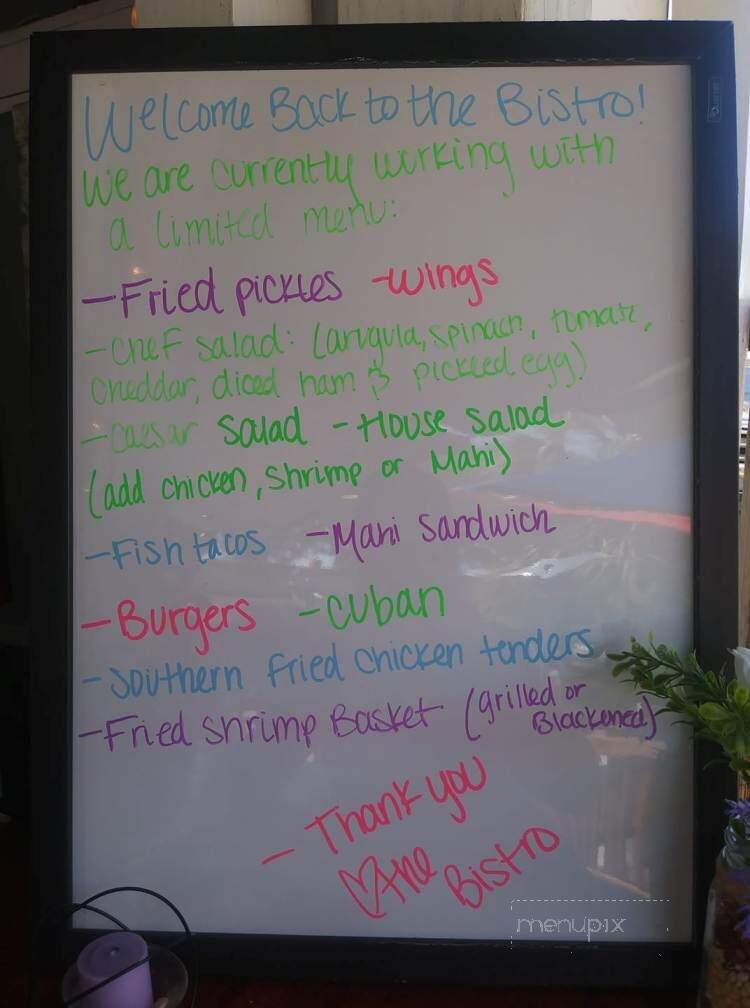 Welcome Back to the Bistro!
We are currently working with
a limited menu:
-Fried pickles -wings
-Chef salad: (arugula, spinach, tomato,
cheddar, diced ham & pickled egg)
-Caesar salad -House salad
(add chicken, shrimp or Mahi)
-Fish tacos -Mahi sandwich
-Burgers -Cuban
-Southern fried chicken tenders
-Fried shrimp Basket (grilled or
Blackened)
- Thank you
♡ the Bistro
menupix